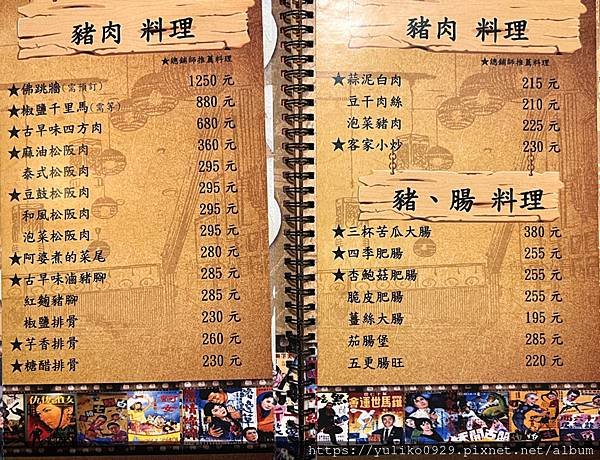 豬肉 料理
★總鋪師推薦料理
★佛跳牆(需預訂) 1250 元
★椒鹽千里馬(需等) 880 元
★古早味四方肉 680 元
★麻油松阪肉 360 元
泰式松阪肉 295 元
★豆鼓松阪肉 295 元
和風松阪肉 295 元
泡菜松阪肉 295 元
★阿婆煮的菜尾 280 元
★古早味滷豬腳 285 元
紅麴豬腳 285 元
椒鹽排骨 230 元
★芋香排骨 260 元
★糖醋排骨 230 元
豬肉 料理
★總鋪師推薦料理
★蒜泥白肉 215 元
豆干肉絲 210 元
泡菜豬肉 225 元
★客家小炒 230 元
豬、腸 料理
★三杯苦瓜大腸 380 元
★四季肥腸 255 元
★杏鮑菇肥腸 255 元
脆皮肥腸 255 元
薑絲大腸 195 元
茄腸堡 285 元
五更腸旺 220 元
命運世馬羅
https://yuliko0929.pixnet.net/album